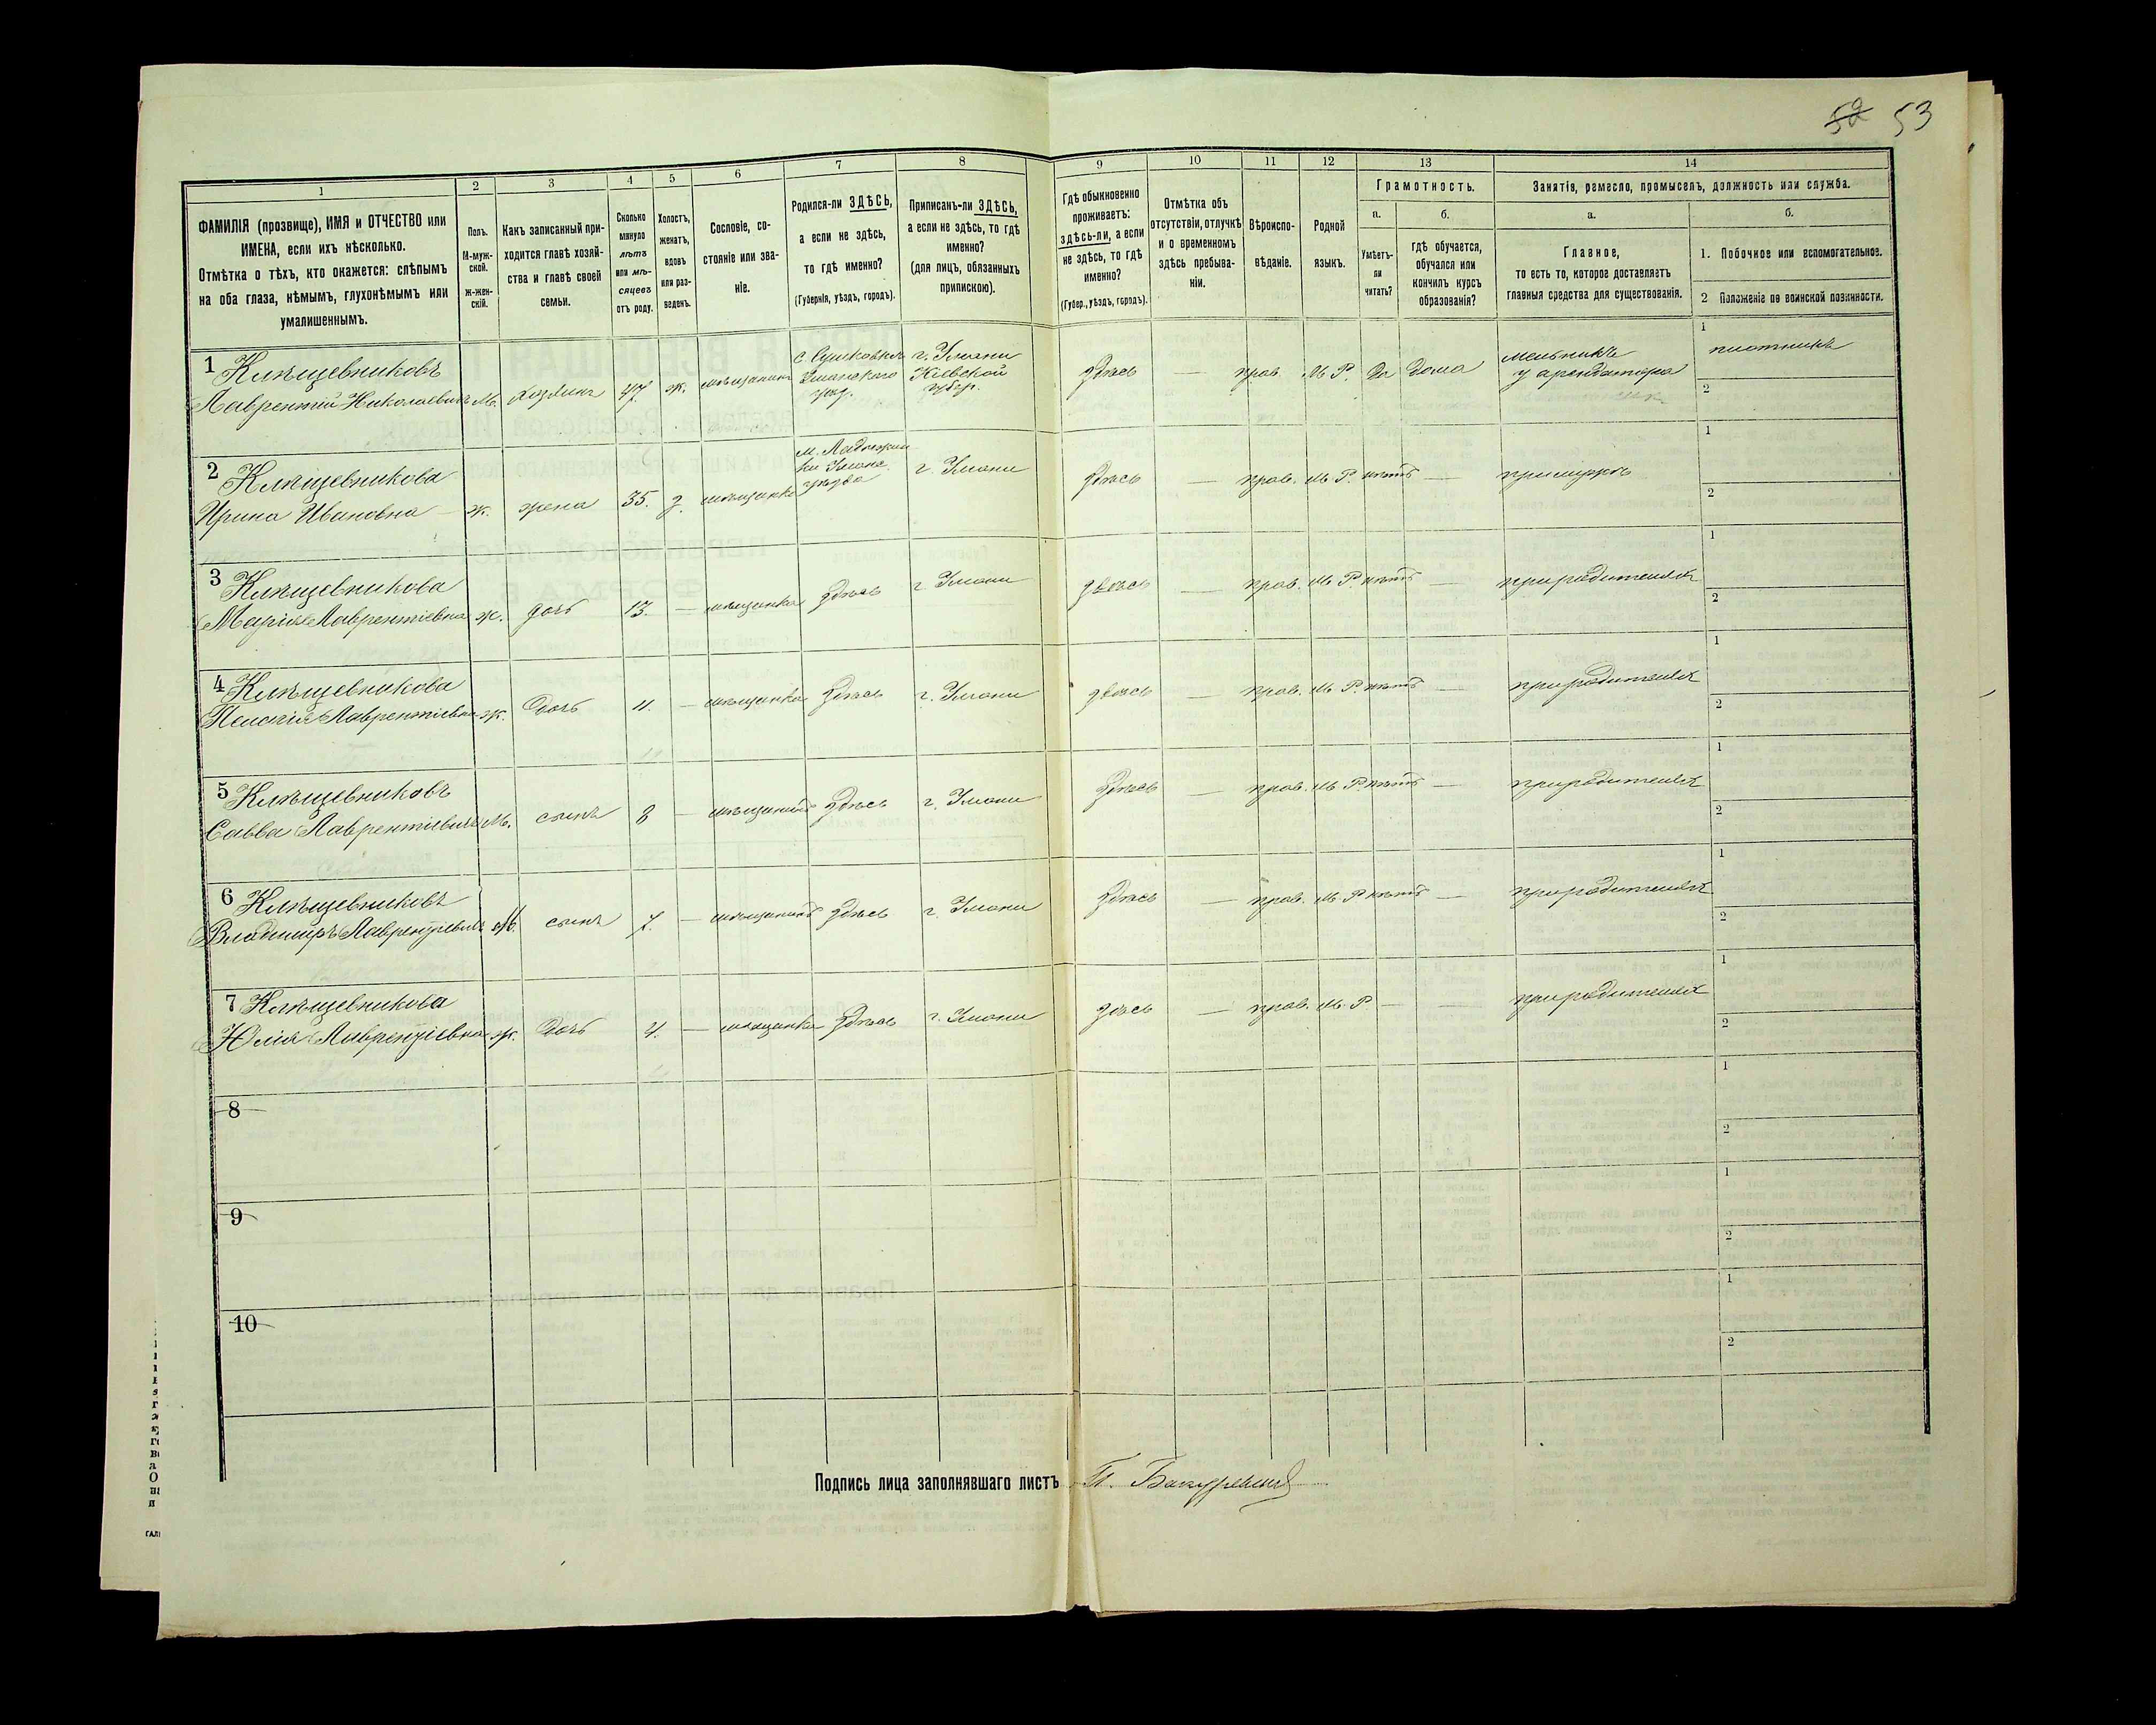 52 53
1 2 3 4 5 6 7 8 9 10 11 12 13 14
ФАМИЛІЯ (прозвище), ИМЯ и ОТЧЕСТВО или
ИМЕНА, если ихъ нѣсколько.
Отмѣтка о тѣхъ, кто окажется: слѣпымъ
на оба глаза, нѣмымъ, глухонѣмымъ или
умалишеннымъ.
Полъ.
М-муж-
ской.
ж-жен-
скій.
Какъ записанный при-
ходится главѣ хозяй-
ства и главѣ своей
семьи.
Сколько
минуло
лѣтъ
или мѣ-
сяцевъ
отъ роду.
Холостъ,
женатъ,
вдовъ
или раз-
веденъ.
Сословіе, со-
стояніе или зва-
ніе.
Родился-ли ЗДѢСЬ,
а если не здѣсь,
то гдѣ именно?
(Губернія, уѣздъ, городъ).
Приписанъ-ли ЗДѢСЬ,
а если не здѣсь, то гдѣ
именно?
(для лицъ, обязанныхъ
припискою).
Гдѣ обыкновенно
проживаетъ:
здѣсь-ли, а если
не здѣсь, то гдѣ
именно?
(Губер., уѣздъ, городъ).
Отмѣтка объ
отсутствіи, отлучкѣ
и о временномъ
здѣсь пребыва-
ніи.
Вѣроиспо-
вѣданіе.
Родной
языкъ.
Грамотность.
а.
Умѣетъ-
ли
читать?
б.
гдѣ обучается,
обучался или
кончилъ курсъ
образованія?
Занятія, ремесло, промыселъ, должность или служба.
а.
Главное,
то есть то, которое доставляетъ
главныя средства для существованія.
б.
1. Побочное или вспомогательное.
2 Положеніе по воинской повинности.
1 Клѣщевниковъ с. Сушковкѣ г. Умани мельникъ 1 плотникъ
Лаврентій Николаевичъ М. хозяинъ 47 ж. мѣщанинъ Уманского уѣз. Кіевской губер. здѣсь — прав. М. Р. Да дома у арендатора 2
2 Клѣщевникова 1
Ирина Ивановна ж. жена 35. з. мѣщанка г. Умани здѣсь — прав. М. Р. нѣтъ — примужѣ 2
3 Клѣщевникова 1
Марія Лаврентіевна ж. дочь 13. — мѣщанка здѣсь г. Умани здѣсь — прав. М. Р. нѣтъ — природителяхъ 2
4 Клѣщевникова 1
Пелагія Лаврентіевна ж. дочь 11. — мѣщанка здѣсь г. Умани здѣсь — прав. М. Р. нѣтъ — природителяхъ 2
5 Клѣщевниковъ 1
Савва Лаврентіевичъ М. сынъ 8 — мѣщанинъ здѣсь г. Умани здѣсь — прав. М. Р. нѣтъ — природителяхъ 2
6 Клѣщевниковъ 1
Владиміръ Лаврентіевичъ М. сынъ 7. — мѣщанинъ здѣсь г. Умани здѣсь — прав. М. Р. нѣтъ — природителяхъ 2
7 Клѣщевникова 1
Юлія Лаврентіевна ж. дочь 4. — мѣщанка здѣсь г. Умани здѣсь — прав. М. Р. — — природителяхъ 2
8 1
2
9 1
2
10 1
2
Подпись лица заполнявшаго листъ